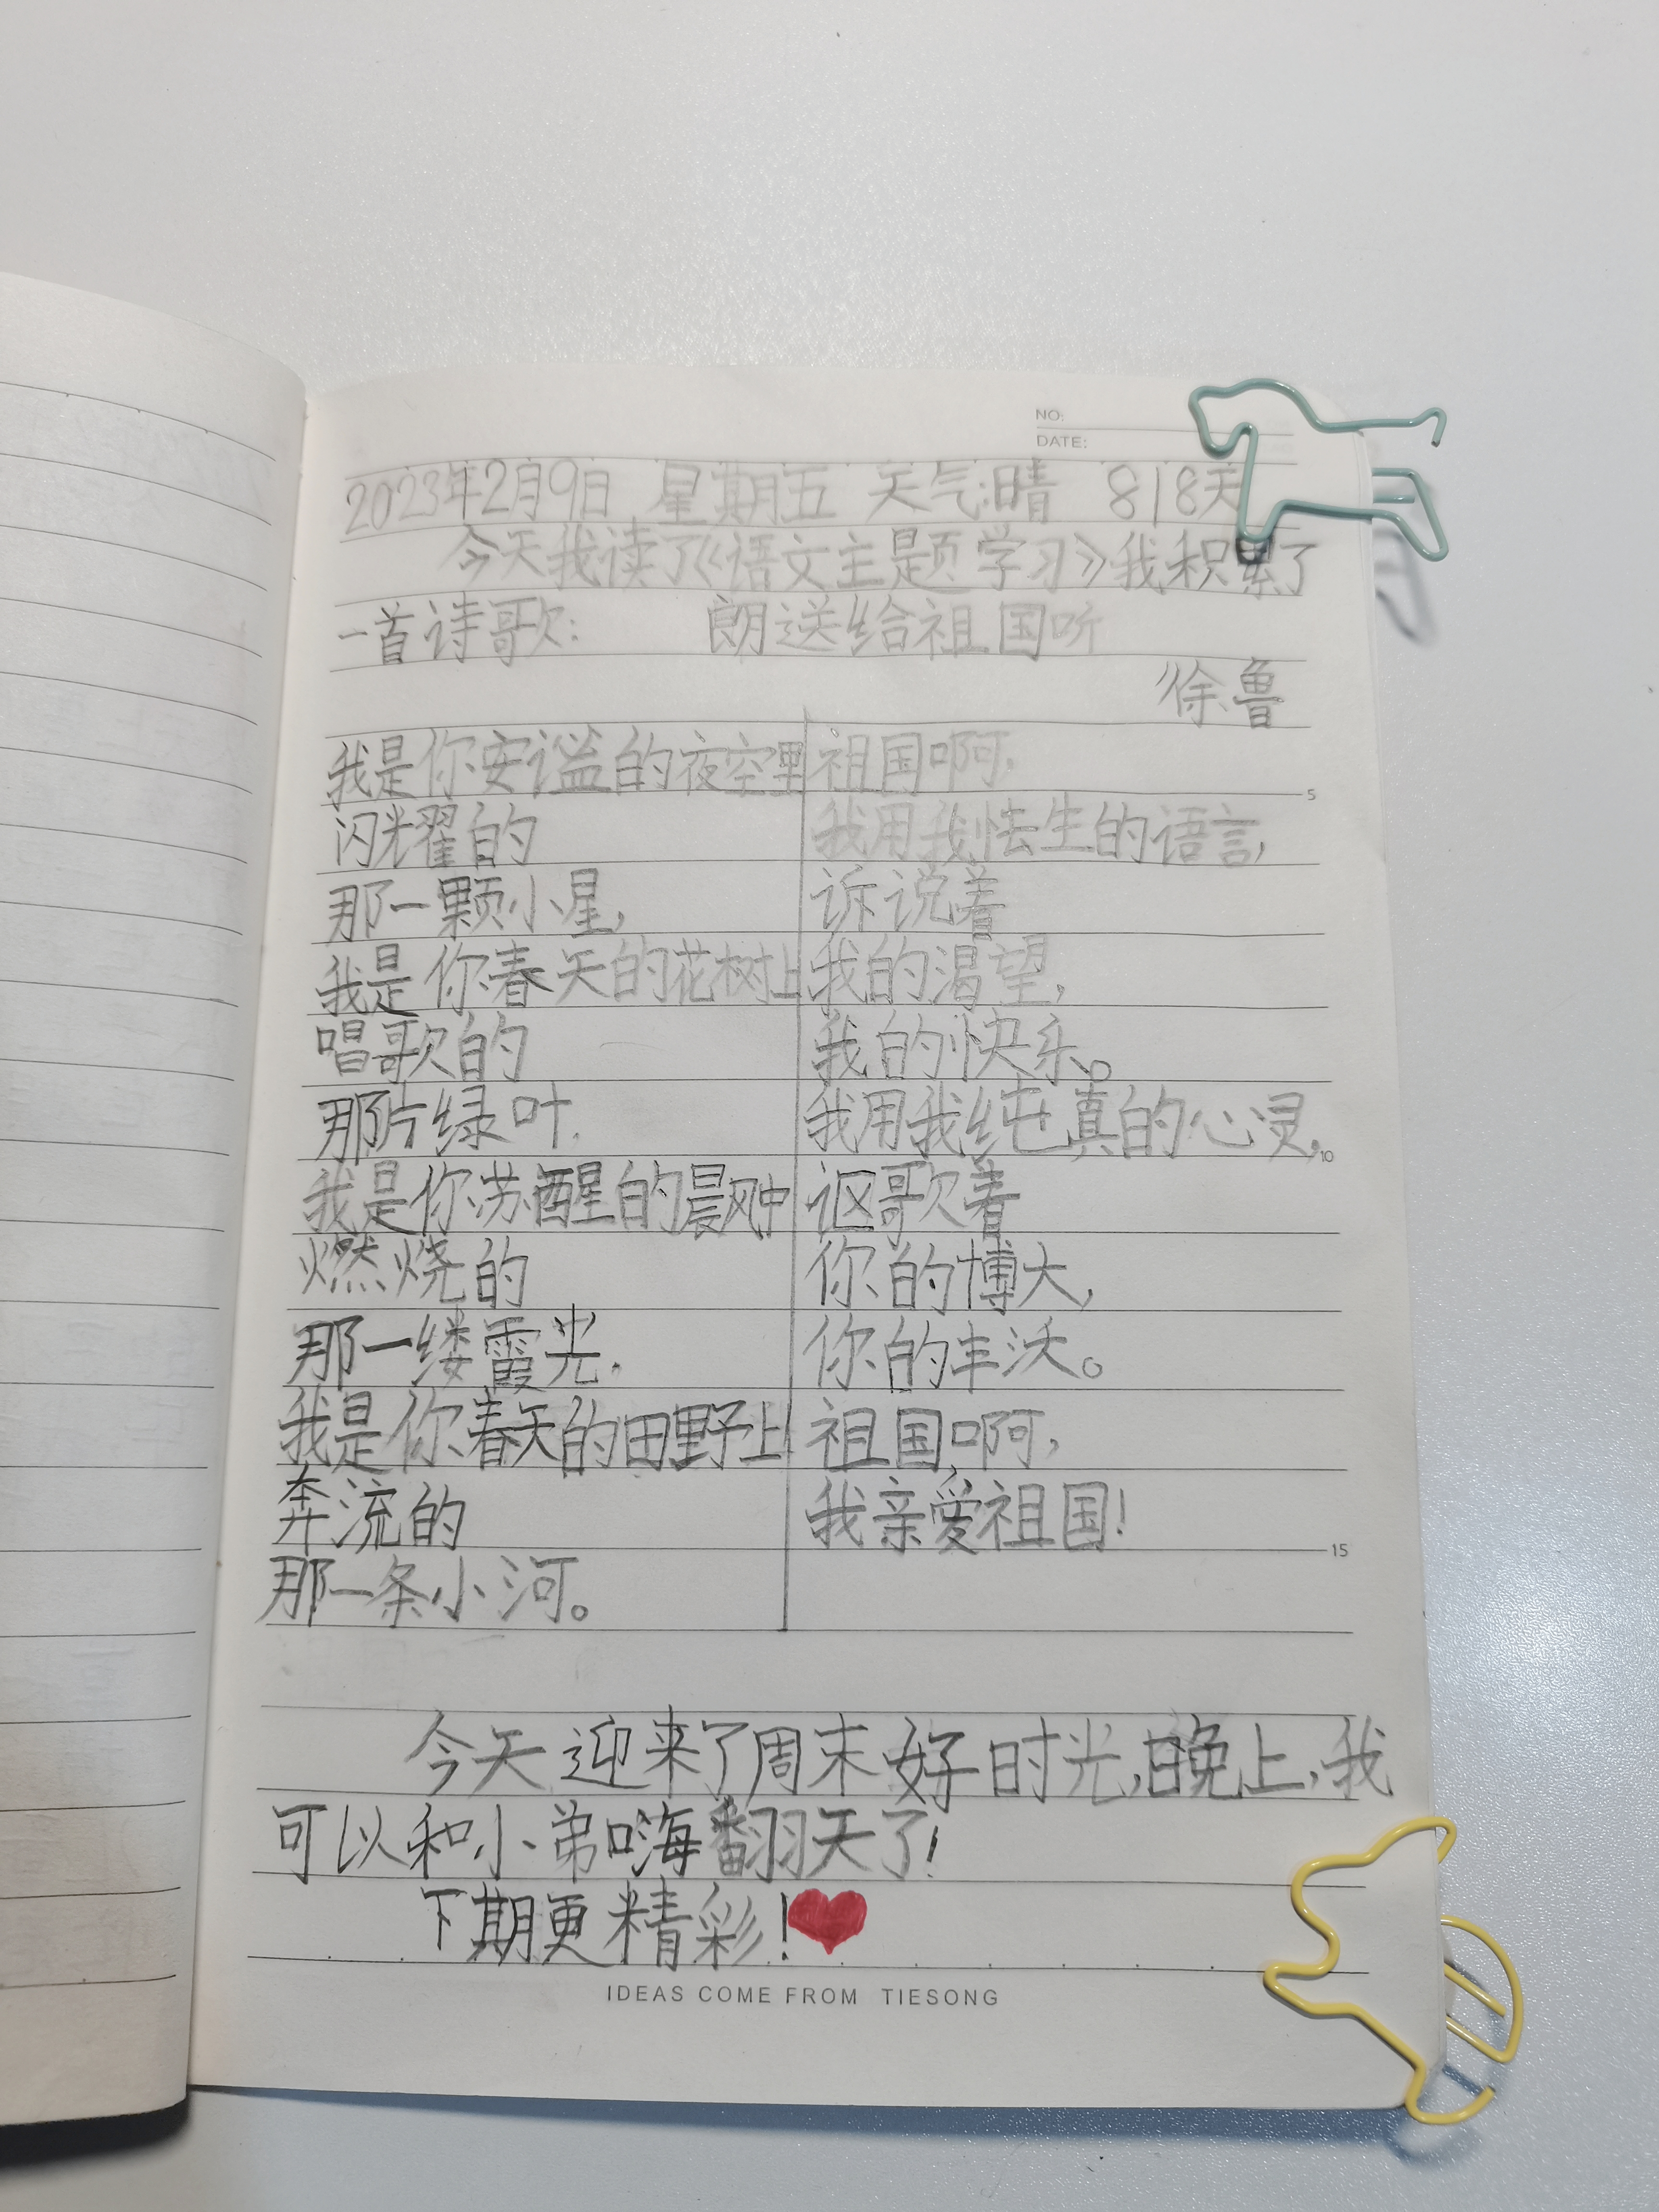 NO:
DATE:
2023年2月9日 星期五 天气:晴 818天
今天我读了《语文主题学习》我积累了
一首诗歌: 朗送给祖国听
徐鲁
我是你安谧的夜空里
闪光耀的
那一颗小星,
我是你春天的花树上
唱歌的
那片绿叶.
我是你苏醒的晨风中
燃烧的
那一缕霞光.
我是你春天的田野上
奔流的
那一条小河。
祖国啊,
5
我用我怯生的语言,
诉说着
我的渴望,
我的快乐。
我用我纯真的心灵,
10
讴歌着
你的博大,
你的丰沃。
祖国啊,
我亲爱祖国!
15
今天迎来了周末好时光,晚上,我
可以和小弟嗨翻天了!
下期更精彩!
IDEAS COME FROM TIESONG